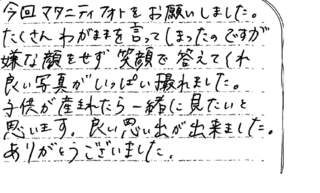 今回マタニティフォトをお願いしました。
たくさんわがままを言ってしまったのですが
嫌な顔をせず笑顔で答えてくれ
良い写真がいっぱい撮れました。
子供が産まれたら一緒に見たいと
思います。良い思い出が出来ました。
ありがとうございました。